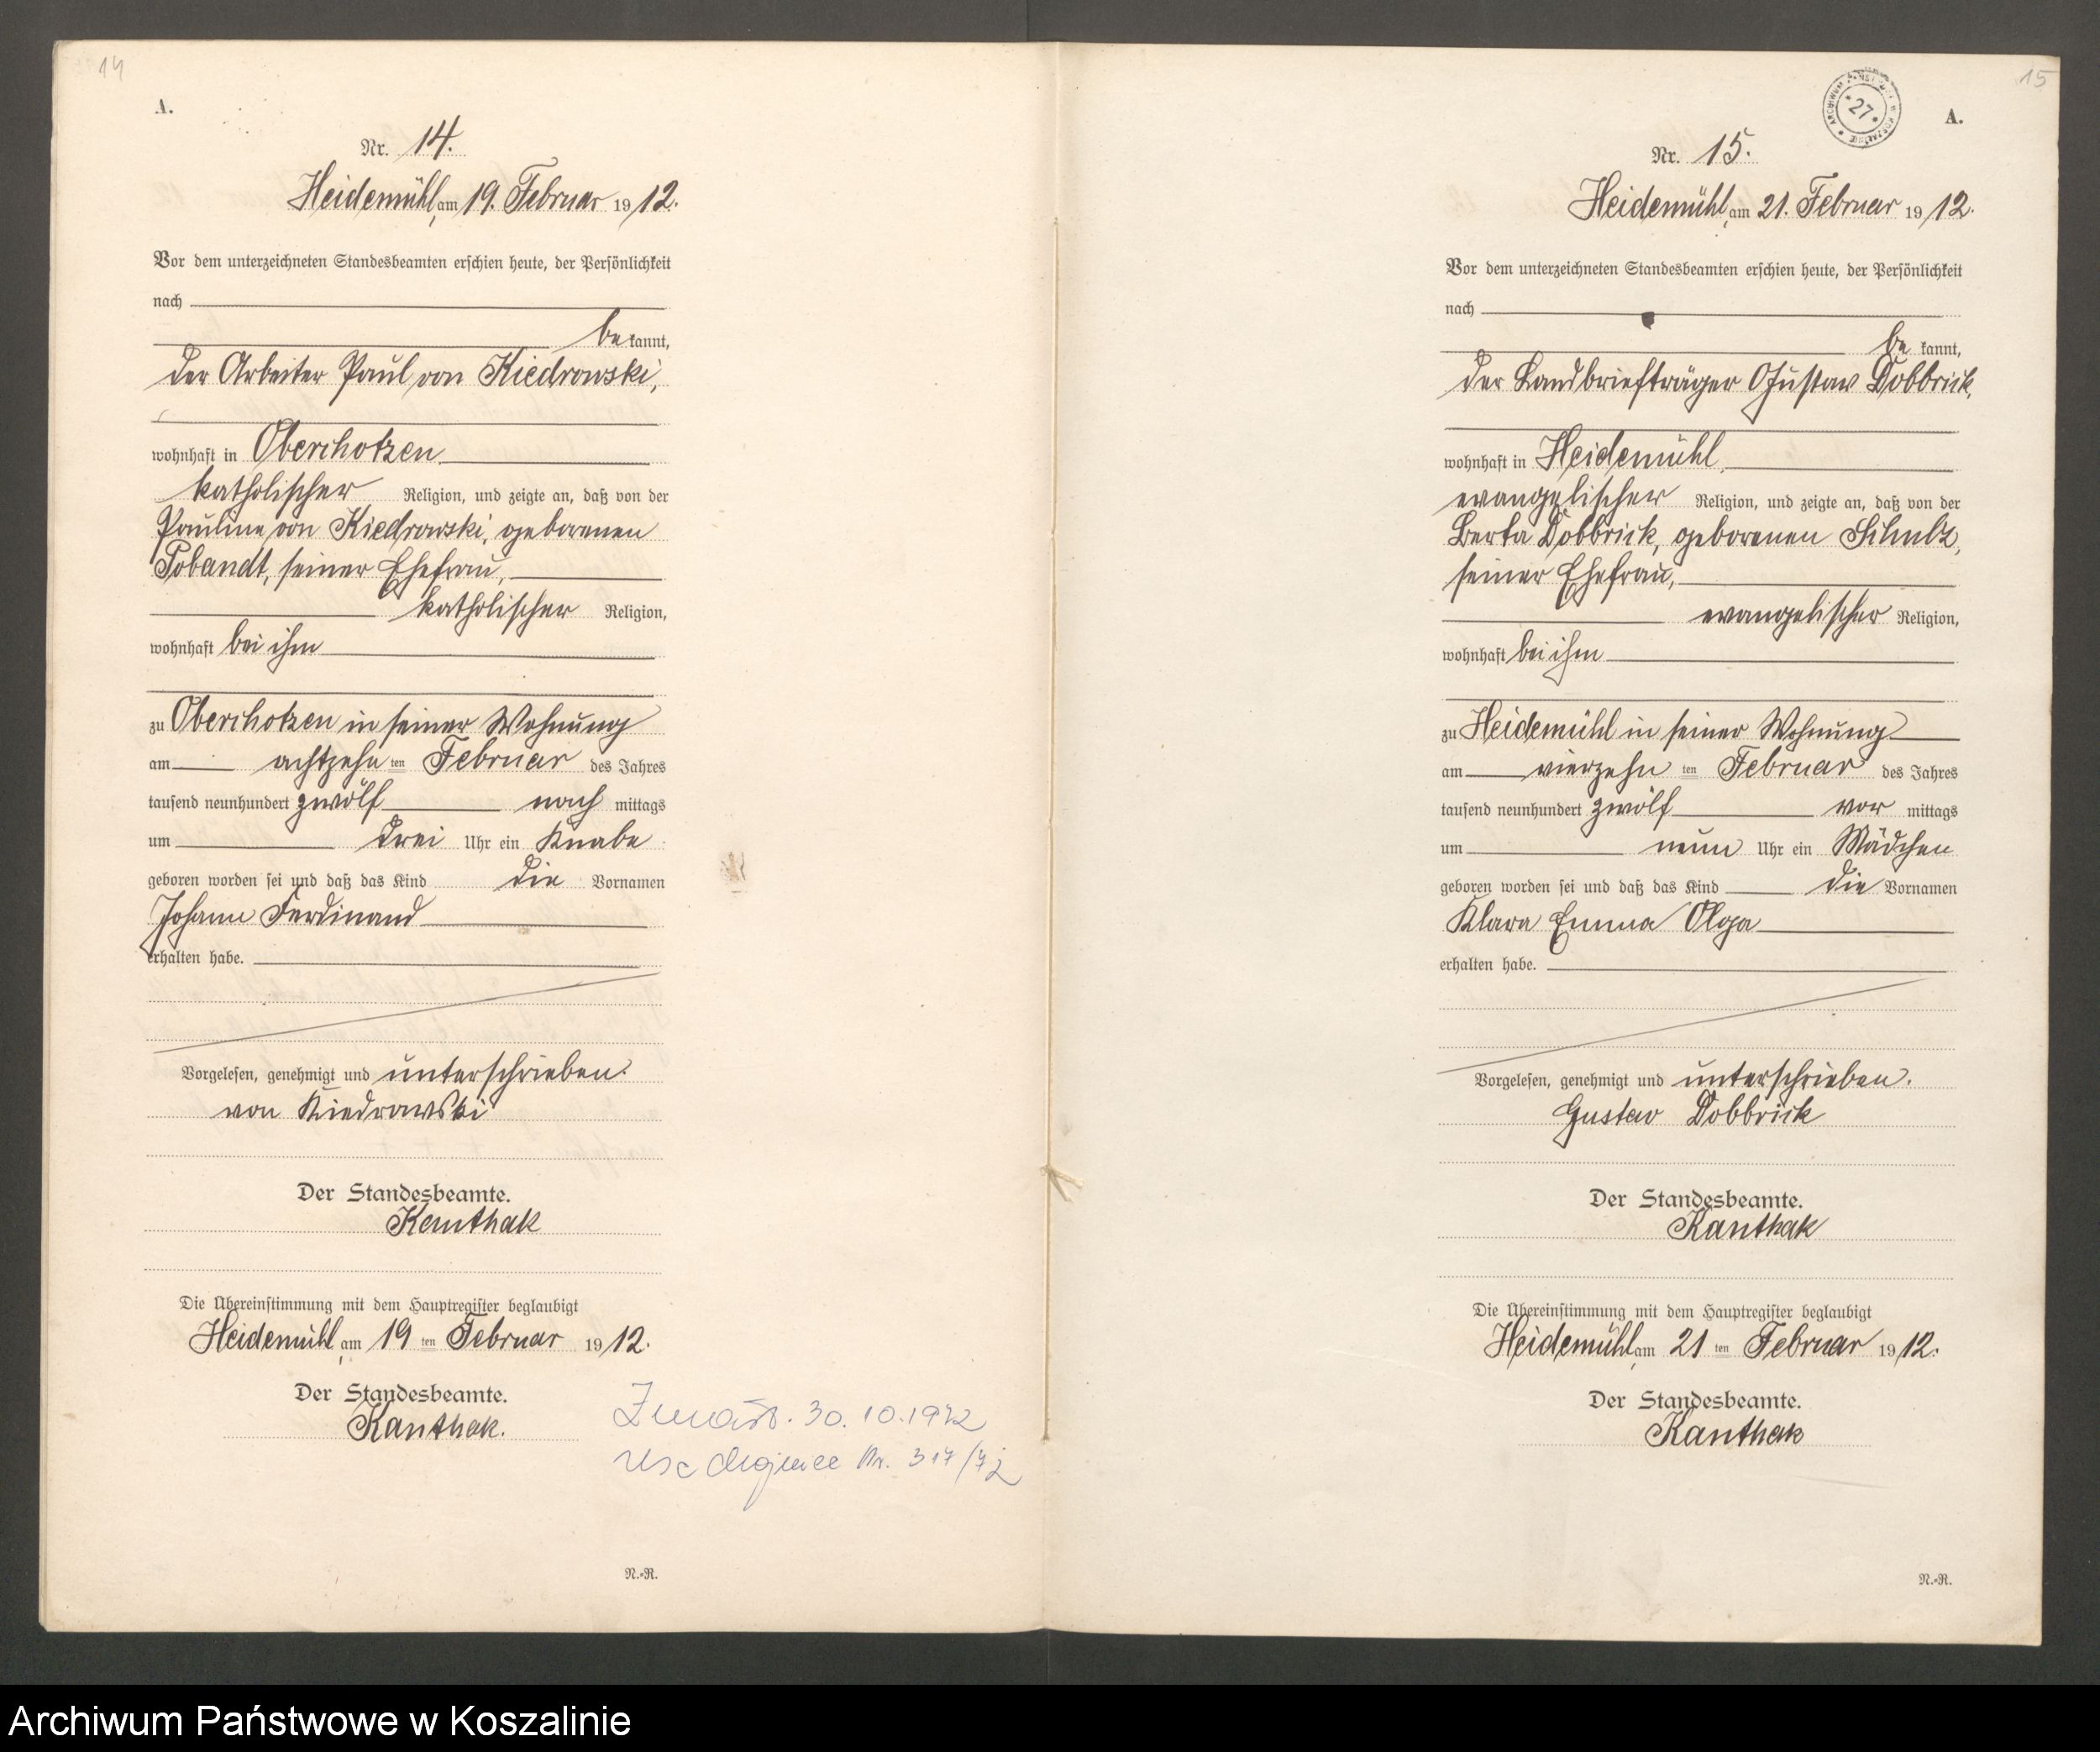 14
A.
Nr. 14.
Heidemühl, am 19. Februar 1912.
Vor dem unterzeichneten Standesbeamten erschien heute, der Persönlichkeit
nach
bekannt,
der Arbeiter Paul von Kiedrowski,
wohnhaft in Oberchotzen
katholischer Religion, und zeigte an, daß von der
Pauline von Kiedrowski, geborenen
Pobandt, seiner Ehefrau,
katholischer Religion,
wohnhaft bei ihm
zu Oberchotzen in seiner Wohnung
am achtzehnten Februar des Jahres
tausend neunhundert zwölf nachmittags
um drei Uhr ein Knabe
geboren worden sei und daß das Kind die Vornamen
Johann Ferdinand
erhalten habe.
Vorgelesen, genehmigt und unterschrieben.
von Kiedrowski
Der Standesbeamte.
Kanthak
Die Übereinstimmung mit dem Hauptregister beglaubigt
Heidemühl, am 19 ten Februar 1912.
Der Standesbeamte.
Kanthak.
30.10.1972
Nr. 317/72
N.-R.
15
ARCHIWUM PAŃSTWOWE W KOSZALINIE
* 27 *
A.
Nr. 15.
Heidemühl, am 21. Februar 1912.
Vor dem unterzeichneten Standesbeamten erschien heute, der Persönlichkeit
nach
bekannt,
der Landbriefträger Gustav Dobbrick,
wohnhaft in Heidemühl,
evangelischer Religion, und zeigte an, daß von der
Berta Dobbrick, geborenen Schulz,
seiner Ehefrau,
evangelischer Religion,
wohnhaft bei ihm
zu Heidemühl in seiner Wohnung
am vierzehn ten Februar des Jahres
tausend neunhundert zwölf vor mittags
um neun Uhr ein Mädchen
geboren worden sei und daß das Kind die Vornamen
Klara Emma Olga
erhalten habe.
Vorgelesen, genehmigt und unterschrieben.
Gustav Dobbrick
Der Standesbeamte.
Kanthak
Die Übereinstimmung mit dem Hauptregister beglaubigt
Heidemühl, am 21 ten Februar 1912.
Der Standesbeamte.
Kanthak
N.-R.
Archiwum Państwowe w Koszalinie